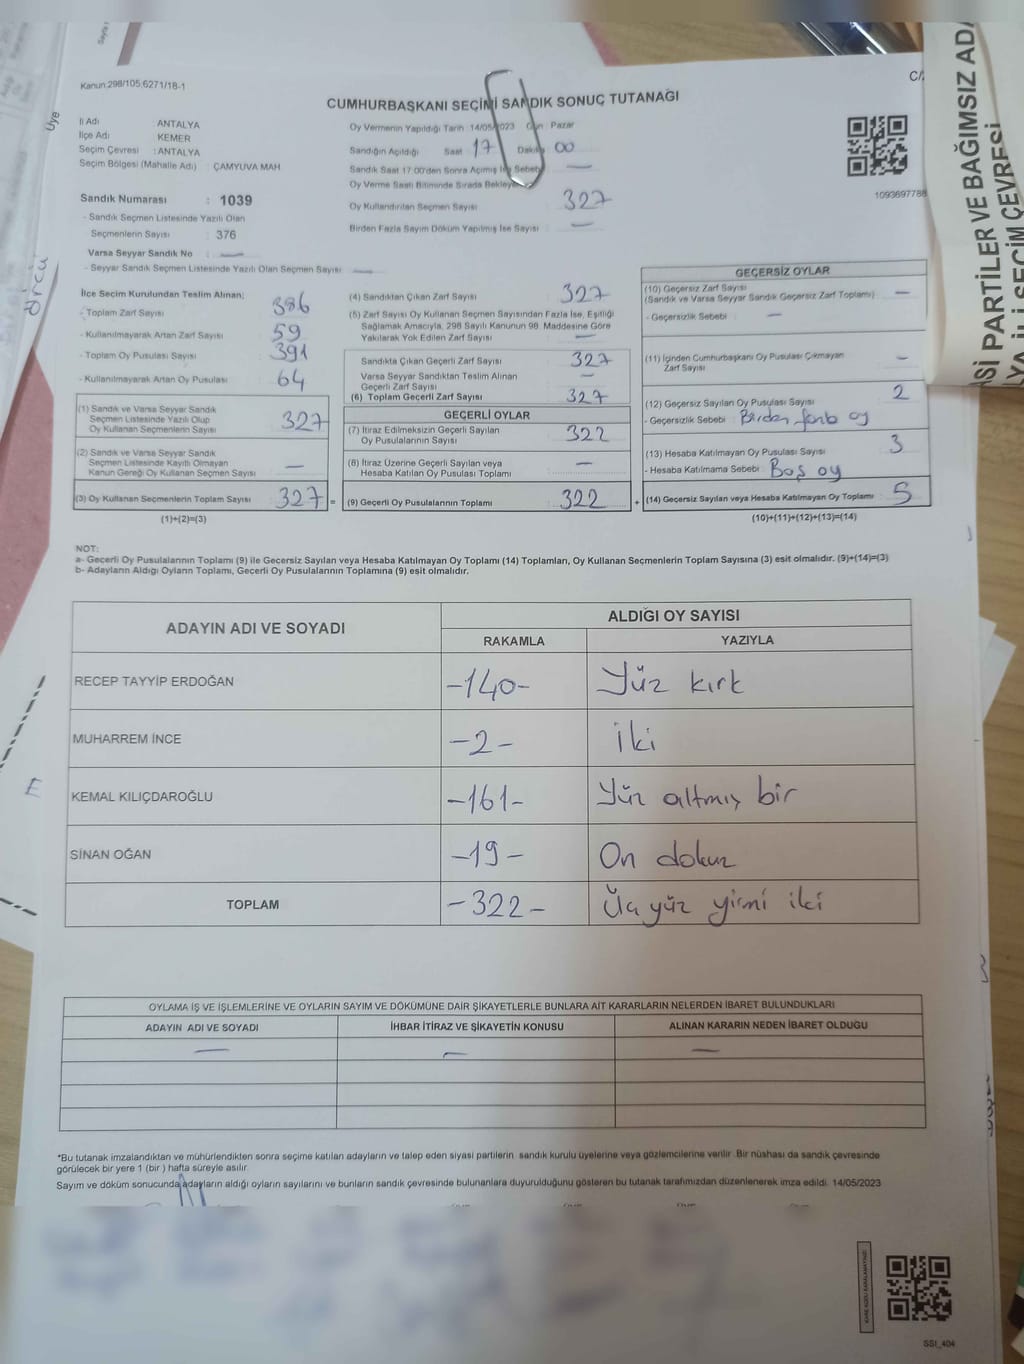 Kanun:298/105,6271/18-1
CUMHURBAŞKANI SEÇİMİ SANDIK SONUÇ TUTANAĞI
C/
İl Adı ANTALYA
İlçe Adı KEMER
Seçim Çevresi : ANTALYA
Seçim Bölgesi (Mahalle Adı) : ÇAMYUVA MAH
Sandık Numarası : 1039
- Sandık Seçmen Listesinde Yazılı Olan
Seçmenlerin Sayısı : 376
Varsa Seyyar Sandık No : —
- Seyyar Sandık Seçmen Listesinde Yazılı Olan Seçmen Sayısı —
Oy Vermenin Yapıldığı Tarih :14/05/2023 Gün : Pazar
Sandığın Açıldığı Saat 17 Dakika 00
Sandık Saat 17:00'den Sonra Açılmış İse Sebebi —
Oy Verme Saati Bitiminde Sırada Bekleyen
Oy Kullandırılan Seçmen Sayısı 327
Birden Fazla Sayım Döküm Yapılmış İse Sayısı —
1093697788
İlçe Seçim Kurulundan Teslim Alınan;
- Toplam Zarf Sayısı 386
- Kullanılmayarak Artan Zarf Sayısı 59
- Toplam Oy Pusulası Sayısı 391
- Kullanılmayarak Artan Oy Pusulası 64
(1) Sandık ve Varsa Seyyar Sandık
Seçmen Listesinde Yazılı Olup
Oy Kullanan Seçmenlerin Sayısı 327
(2) Sandık ve Varsa Seyyar Sandık
Seçmen Listesinde Kayıtlı Olmayan
Kanun Gereği Oy Kullanan Seçmen Sayısı —
(3) Oy Kullanan Seçmenlerin Toplam Sayısı 327 =
(1)+(2)=(3)
(4) Sandıktan Çıkan Zarf Sayısı 327
(5) Zarf Sayısı Oy Kullanan Seçmen Sayısından Fazla İse, Eşitliği
Sağlamak Amacıyla, 298 Sayılı Kanunun 98. Maddesine Göre
Yakılarak Yok Edilen Zarf Sayısı —
Sandıkta Çıkan Geçerli Zarf Sayısı 327
Varsa Seyyar Sandıktan Teslim Alınan
Geçerli Zarf Sayısı —
(6) Toplam Geçerli Zarf Sayısı 327
GEÇERLİ OYLAR
(7) İtiraz Edilmeksizin Geçerli Sayılan
Oy Pusulalarının Sayısı 322
(8) İtiraz Üzerine Geçerli Sayılan veya
Hesaba Katılan Oy Pusulası Toplamı —
(9) Geçerli Oy Pusulalarının Toplamı 322 +
GEÇERSİZ OYLAR
(10) Geçersiz Zarf Sayısı
(Sandık ve Varsa Seyyar Sandık Geçersiz Zarf Toplamı) —
- Geçersizlik Sebebi —
(11) İçinden Cumhurbaşkanı Oy Pusulası Çıkmayan
Zarf Sayısı —
(12) Geçersiz Sayılan Oy Pusulası Sayısı 2
- Geçersizlik Sebebi : Birden fazla oy
(13) Hesaba Katılmayan Oy Pusulası Sayısı 3
- Hesaba Katılmama Sebebi : Boş oy
(14) Geçersiz Sayılan veya Hesaba Katılmayan Oy Toplamı 5
(10)+(11)+(12)+(13)=(14)
NOT:
a- Geçerli Oy Pusulalarının Toplamı (9) ile Gecersiz Sayılan veya Hesaba Katılmayan Oy Toplamı (14) Toplamları, Oy Kullanan Seçmenlerin Toplam Sayısına (3) eşit olmalıdır. (9)+(14)=(3)
b- Adayların Aldığı Oyların Toplamı, Gecerli Oy Pusulalarının Toplamına (9) eşit olmalıdır.
ADAYIN ADI VE SOYADI ALDIĞI OY SAYISI
RAKAMLA YAZIYLA
RECEP TAYYİP ERDOĞAN -140- Yüz kırk
MUHARREM İNCE -2- İki
KEMAL KILIÇDAROĞLU -161- Yüz altmış bir
SİNAN OĞAN -19- On dokuz
TOPLAM -322- Üç yüz yirmi iki
OYLAMA İŞ VE İŞLEMLERİNE VE OYLARIN SAYIM VE DÖKÜMÜNE DAİR ŞİKAYETLERLE BUNLARA AİT KARARLARIN NELERDEN İBARET BULUNDUKLARI
ADAYIN ADI VE SOYADI İHBAR İTİRAZ VE ŞİKAYETİN KONUSU ALINAN KARARIN NEDEN İBARET OLDUĞU
— — —
*Bu tutanak imzalandıktan ve mühürlendikten sonra seçime katılan adayların ve talep eden siyasi partilerin sandık kurulu üyelerine veya gözlemcilerine verilir. Bir nüshası da sandık çevresinde
görülecek bir yere 1 (bir) hafta süreyle asılır.
Sayım ve döküm sonucunda adayların aldığı oyların sayılarını ve bunların sandık çevresinde bulunanlara duyurulduğunu gösteren bu tutanak tarafımızdan düzenlenerek imza edildi. 14/05/2023
SSI_404
Üye
E
PARTİLER VE BAĞIMSIZ
SEÇİM ÇEVRESİ